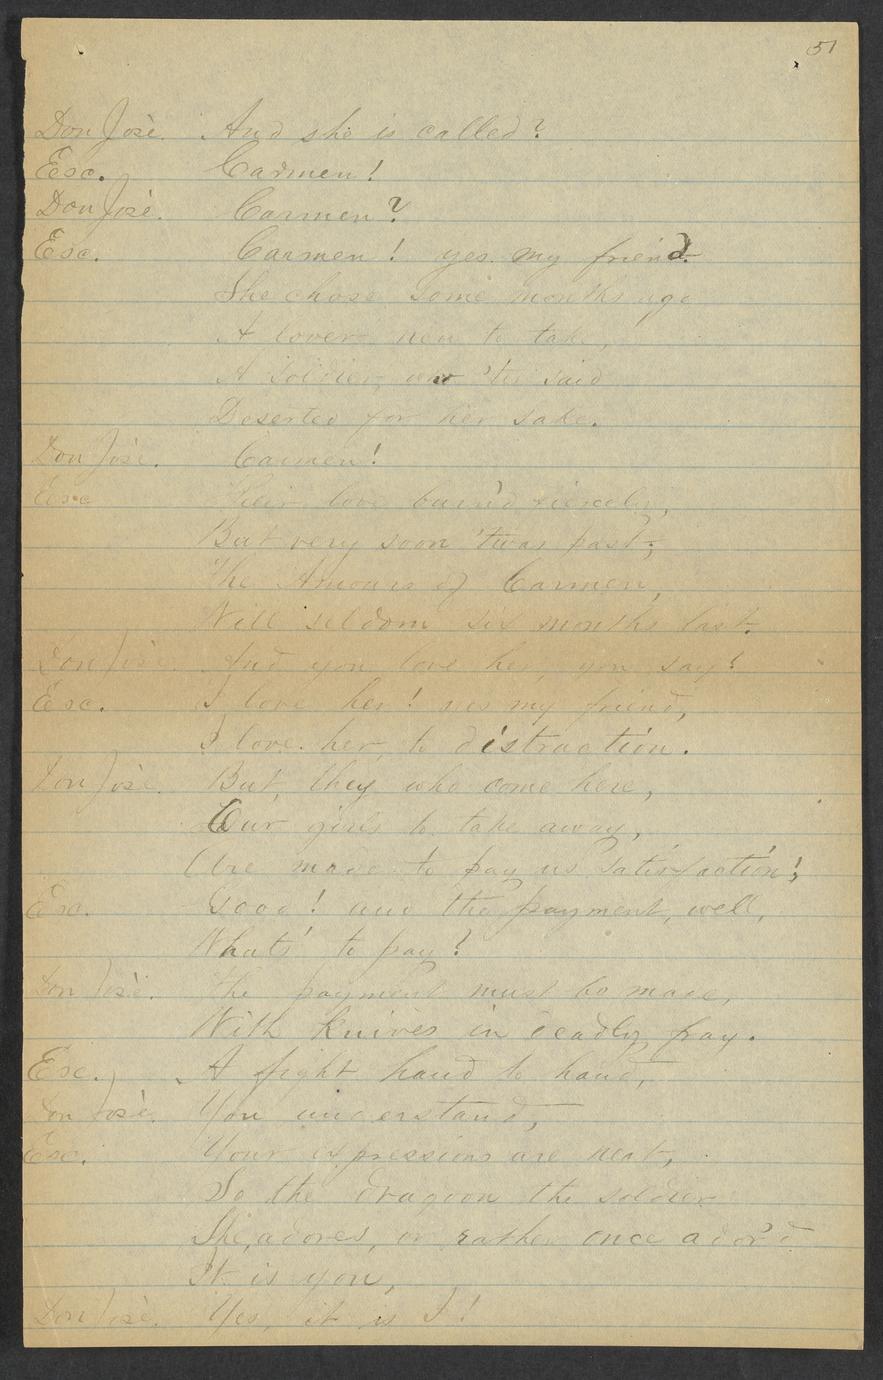 51
Don José. And she is called?
Esc. Carmen!
Don José. Carmen?
Esc. Carmen! yes my friend.
She chose some months ago
A lover new to take,
A soldier, 'tis said
Deserted for her sake.
Don José. Carmen!
Esc Their love burn'd fiercely,
But very soon 'twas past;
The Amours of Carmen,
Will seldom six months last.
Don José. And you love her, you say?
Esc. I love her! yes my friend,
I love her to distraction.
Don José. But, they who come here,
Our girls to take away,
Are made to pay us satisfaction!;
Esc. Good! and the payment, well,
Whats' to pay?
Don José. The payment must be made,
With knives in deadly fray.
Esc. A fight hand to hand,
Don José. You understand,
Esc. Your expressions are neat,
So the dragoon the soldier
She, adores, or rather once ador'd
It is you,
Don José. Yes, it is I!